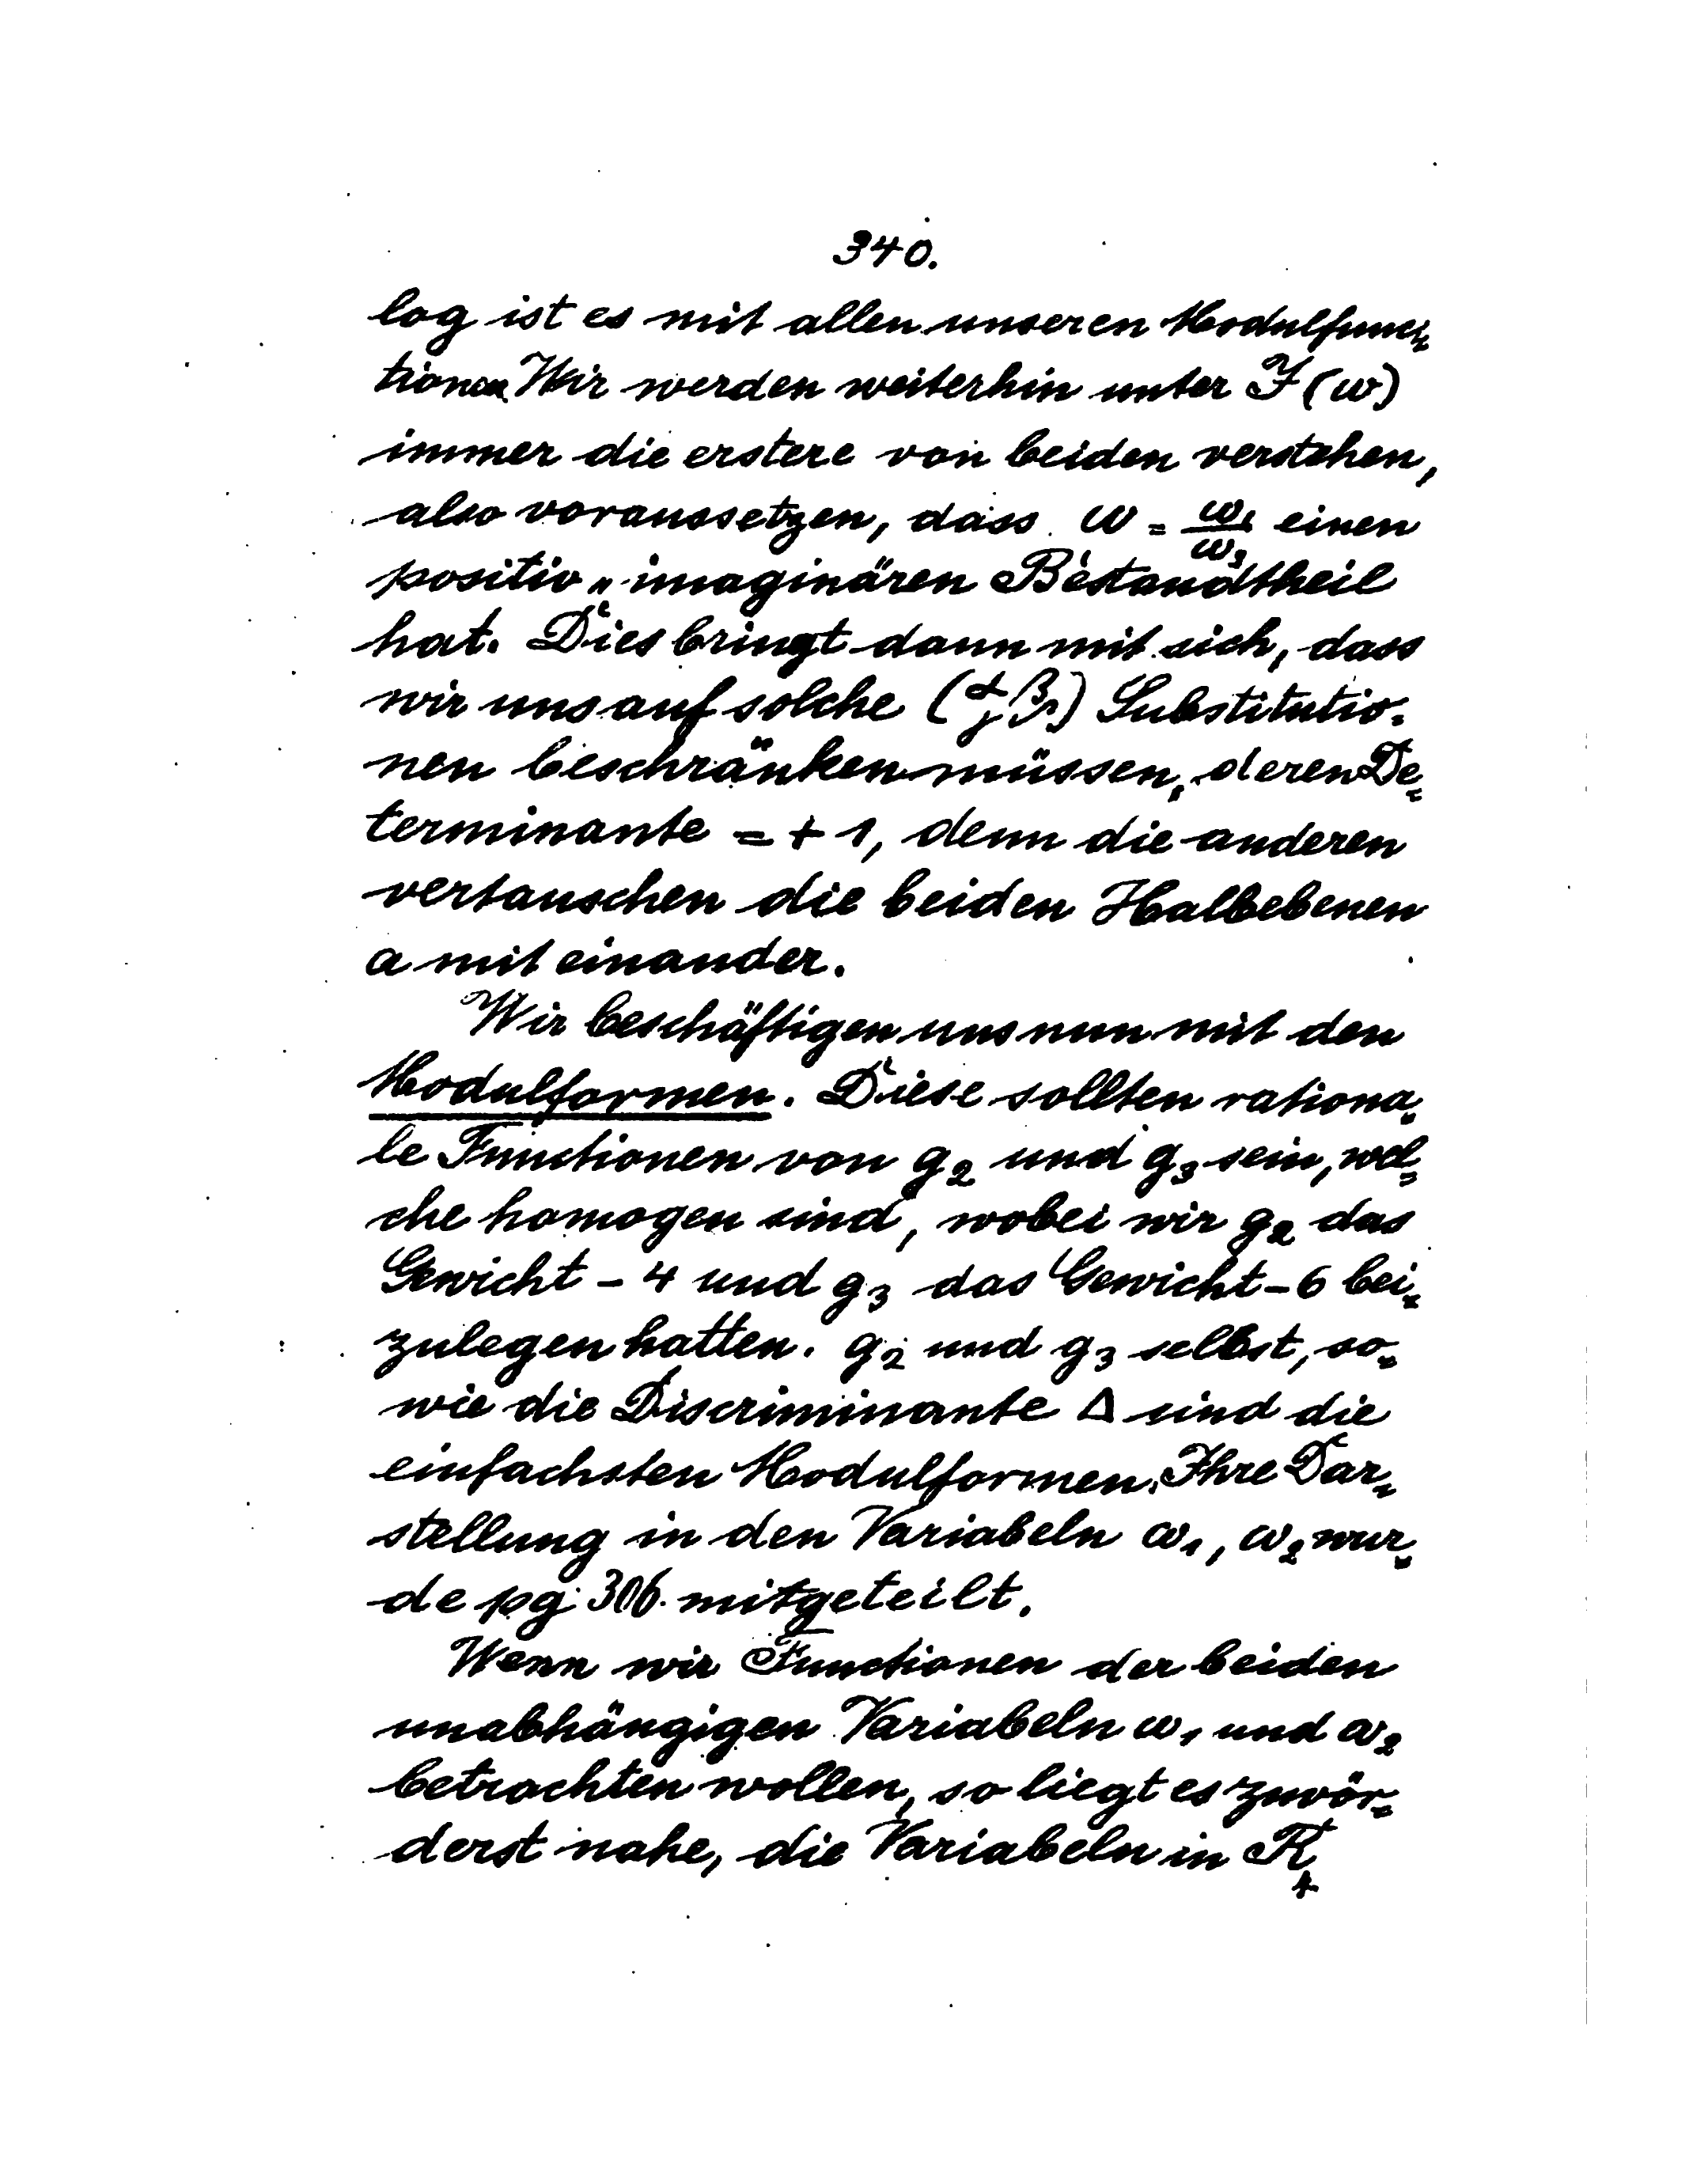 340.
log ist es mit allen unseren Modulfunc=
tionen Wir werden weiterhin unter J (ω)
immer die erstere von beiden verstehen,
also voraussetzen, dass ω = ω₁/ω₂ einen
positiv „ imaginären Bestandtheil
hat. Dies bringt dann mit sich, dass
wir uns auf solche (α β γ δ) Substitutio=
nen beschränken müssen, deren De=
terminante = + 1, denn die anderen
vertauschen die beiden Halbebenen
a mit einander.
Wir beschäftigen uns nun mit den
Modulformen. Diese sollten rationa=
le Functionen von g₂ und g₃ sein, wel=
che homogen sind, wobei wir g₂ das
Gewicht - 4 und g₃ das Gewicht - 6 bei=
zulegen hatten. g₂ und g₃ selbst, so=
wie die Discriminante Δ sind die
einfachsten Modulformen. Ihre Dar=
stellung in den Variabeln ω₁, ω₂ wur=
de pg 306. mitgeteilt.
Wenn wir Functionen der beiden
unabhängigen Variabeln ω₁ und ω₂
betrachten wollen, so liegt es zuvör=
derst nahe, die Variabeln in R₄